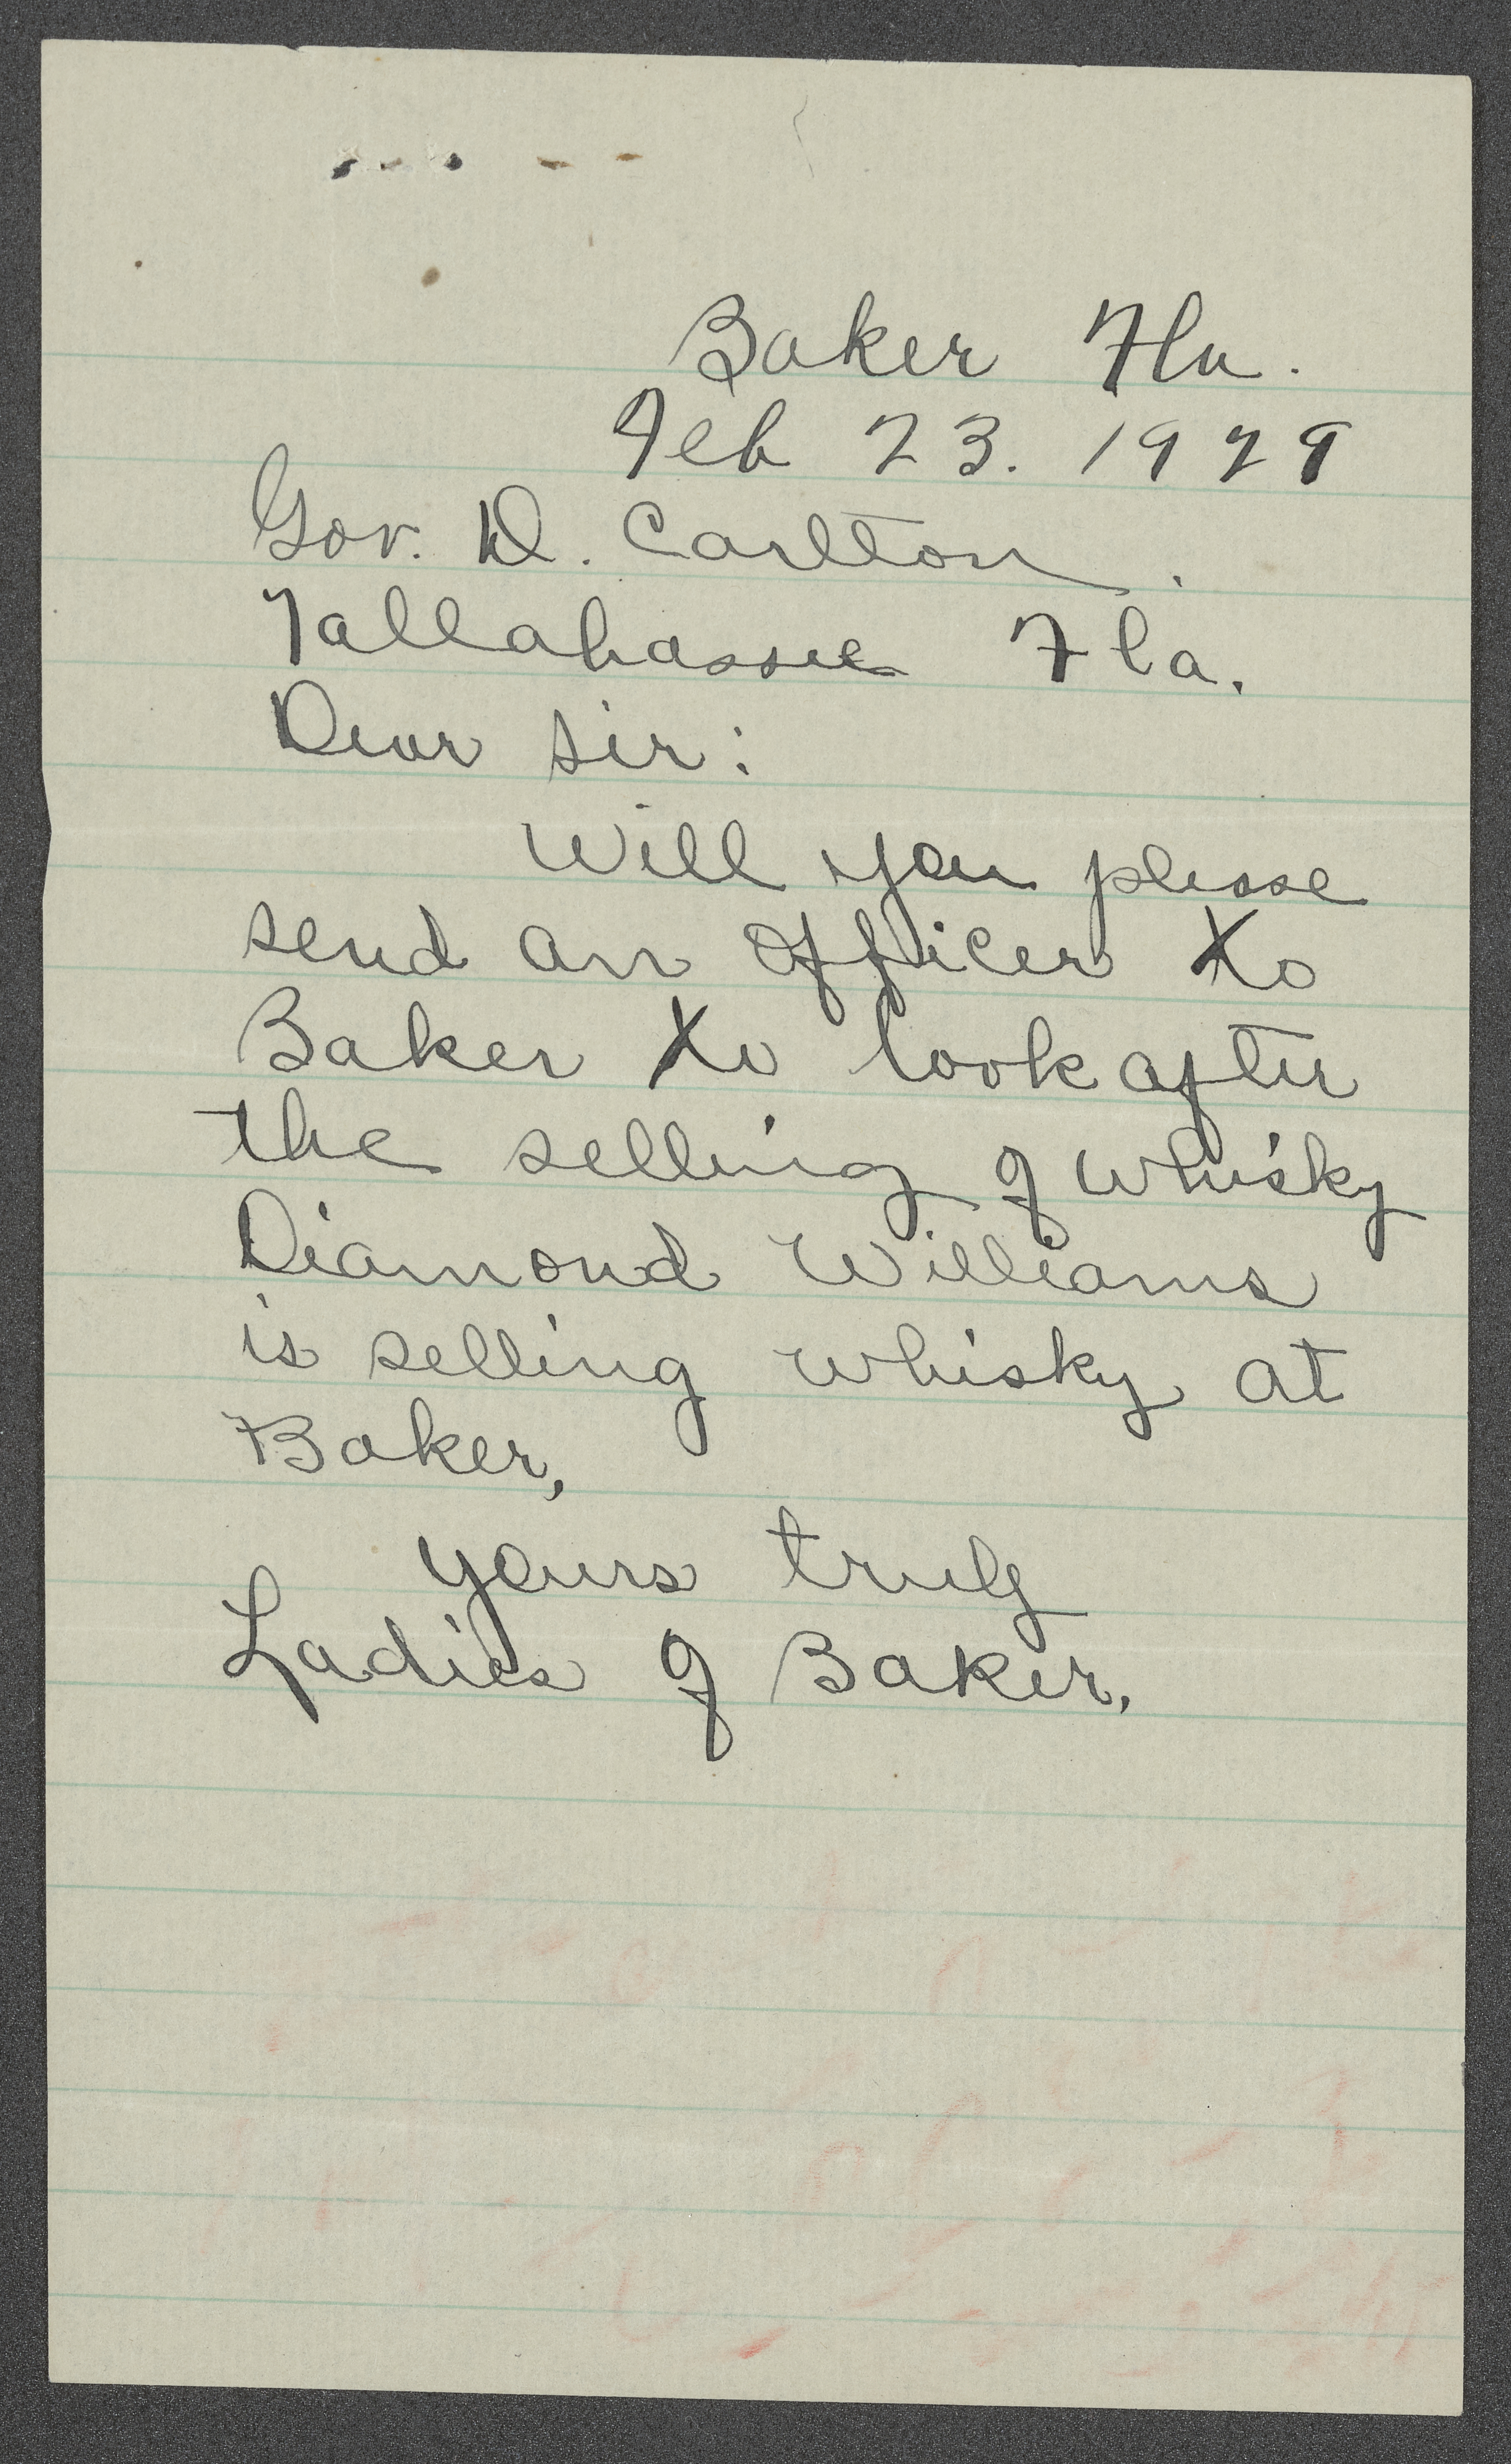 Baker Fla.
Feb 23. 1929
Gov. D. Carlton.
Tallahassee Fla.
Dear Sir:
Will you please
send an officer to
Baker to look after
the selling of whisky
Diamond Williams
is selling whisky at
Baker,
yours truly
Ladies of Baker.